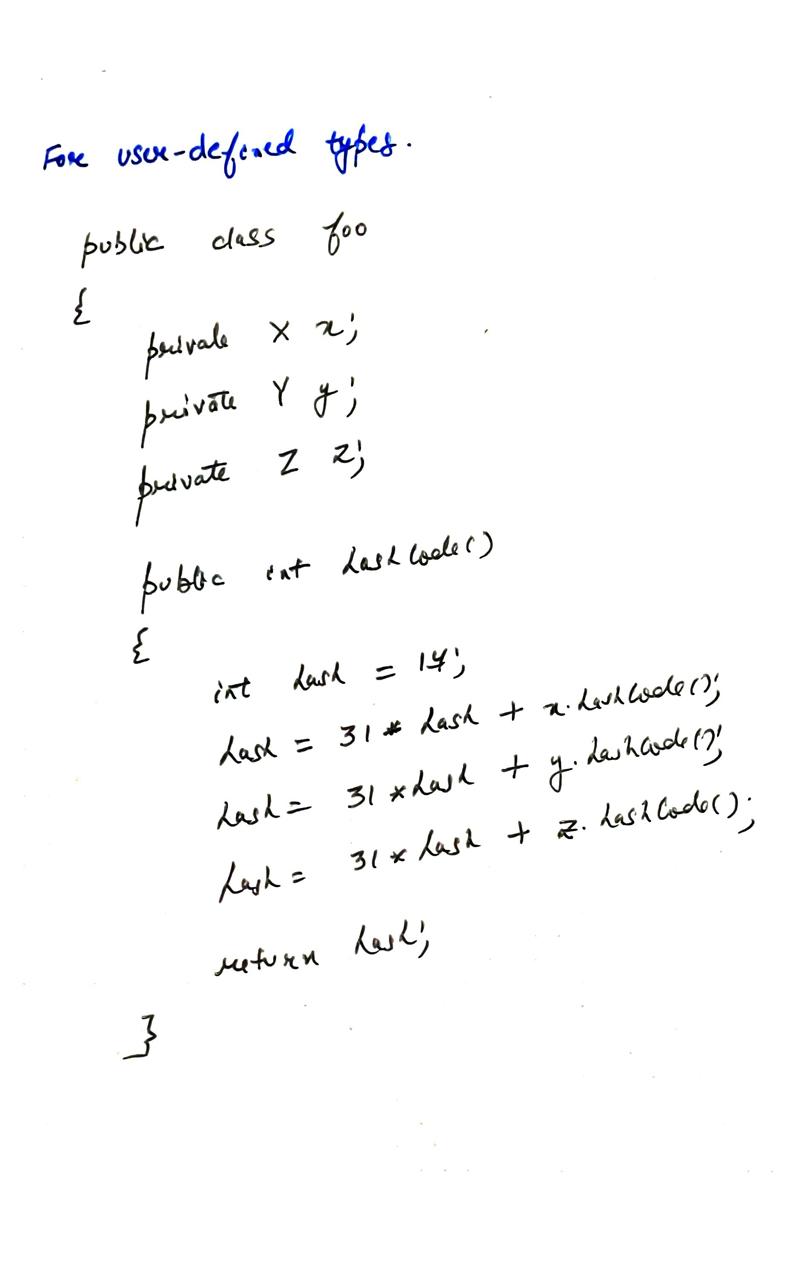 For user-defined types.
public class foo
{
private X x;
private Y y;
private Z z;
public int hashCode()
{
int hash = 17;
hash = 31 * hash + x.hashCode();
hash = 31 * hash + y.hashCode();
hash = 31 * hash + z.hashCode();
return hash;
}